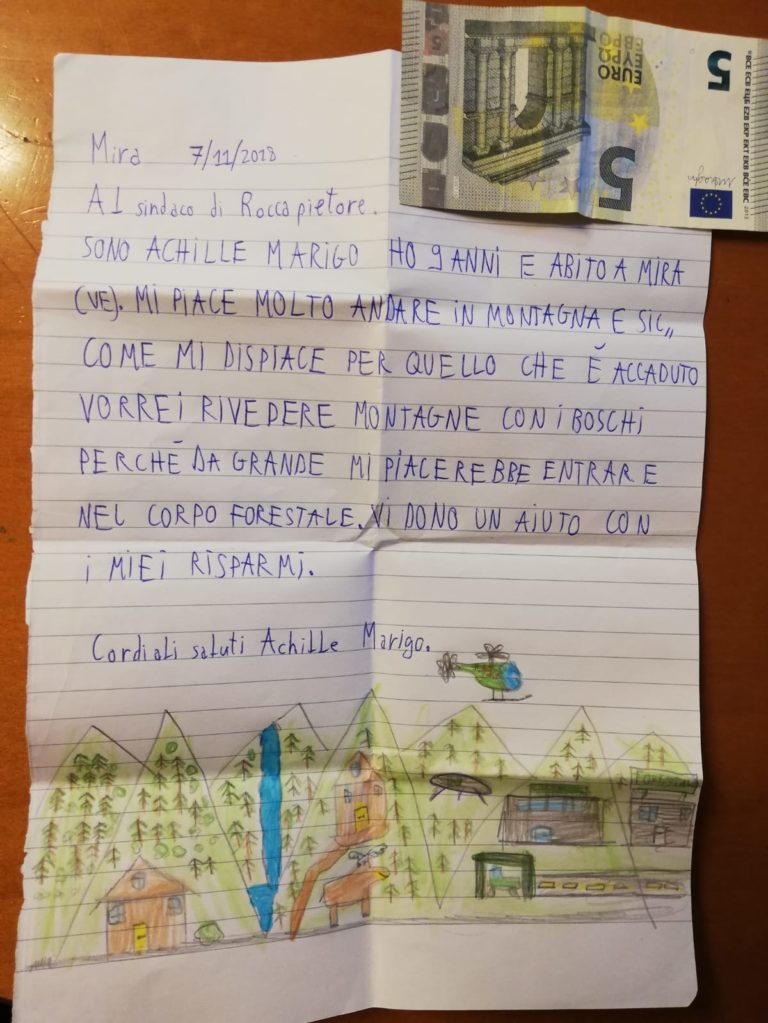 BCE ECB ЕЦБ EZB EKP EKT EKB BĊE EBC 2013
5
EURO
ΕΥΡΩ
ЕВРО
5
Mira 7/11/2018
Al sindaco di Roccapietore.
SONO ACHILLE MARIGO HO 9 ANNI E ABITO A MIRA
(VE). MI PIACE MOLTO ANDARE IN MONTAGNA E SIC,,
COME MI DISPIACE PER QUELLO CHE È ACCADUTO
VORREI RIVEDERE MONTAGNE CON I BOSCHI
PERCHÉ DA GRANDE MI PIACEREBBE ENTRARE
NEL CORPO FORESTALE. VI DONO UN AIUTO CON
I MIEI RISPARMI.
Cordiali saluti Achille Marigo.